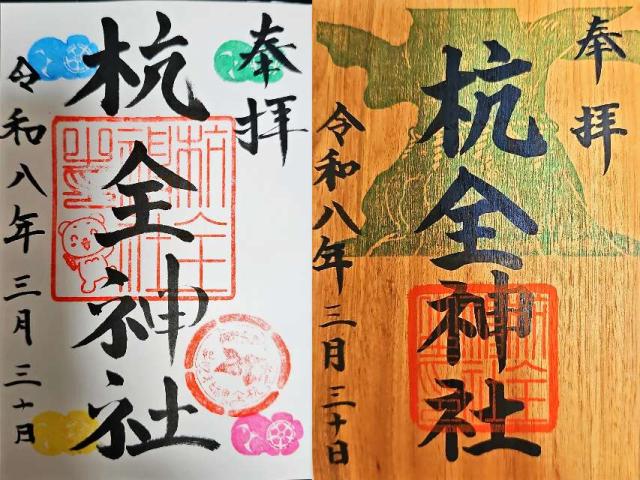 奉拝
杭全神社
令和八年三月三十日
奉拝
杭全神社
令和八年三月三十日